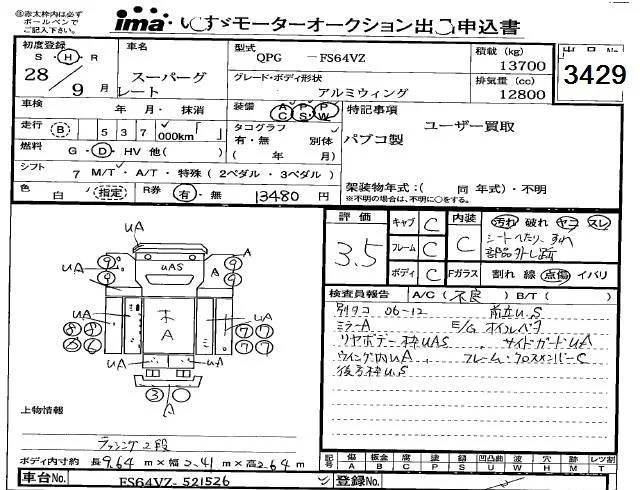 ⑧赤太枠内は必ず
ボールペンで
ご記入下さい。
ima いすゞモーターオークション出品申込書
初度登録
S・H・R
28/9月
車名
スーパーグレート
型式
QPG - FS64VZ
グレード・ボディ形状
アルミウィング
積載 (kg)
13700
排気量 (cc)
12800
出品No.
3429
車検 年 月・抹消
装備 AC PS PW
走行 B 537 000km
タコグラフ
有・無 別体
( 年 月)
燃料 G・D・HV 他( )
シフト 7 M/T・A/T・特殊(2ペダル・3ペダル)
色 白 (指定) R券 有・無 13480 円
特記事項
ユーザー買取
パブコ製
架装物年式:( 同 年式)・不明
※不明の場合は、不明に○をする。
評価
3.5
キャブ C
フレーム C
ボディ C
内装 C
汚れ 破れ ヤニ スレ
シートへたり、すれ
部品外し跡
Fガラス 割れ 線 点傷 イバリ
検査員報告 A/C(不良) B/T( )
別タコ 06-12 前立U.S
ミラーA E/G オイルベタ
リヤボデー枠UAS サイドガードUA
ウイング内UA フレーム・クロスメンバーC
後方枠U.S
uA
uA uAS A
9 9 9 9
uA uA
木
A
8 8 8 6 7 7 7 7
A A
3
A
上物情報
ラッシング2段
ボディ内寸約 長9.64m×幅2.41m×高2.64m
記号 傷 板金 腐 塗 錆 凹凸曲 波 穴 跡 レツ割
A B C P S U W H M T
車台No. FS64VZ-521526
登録No.